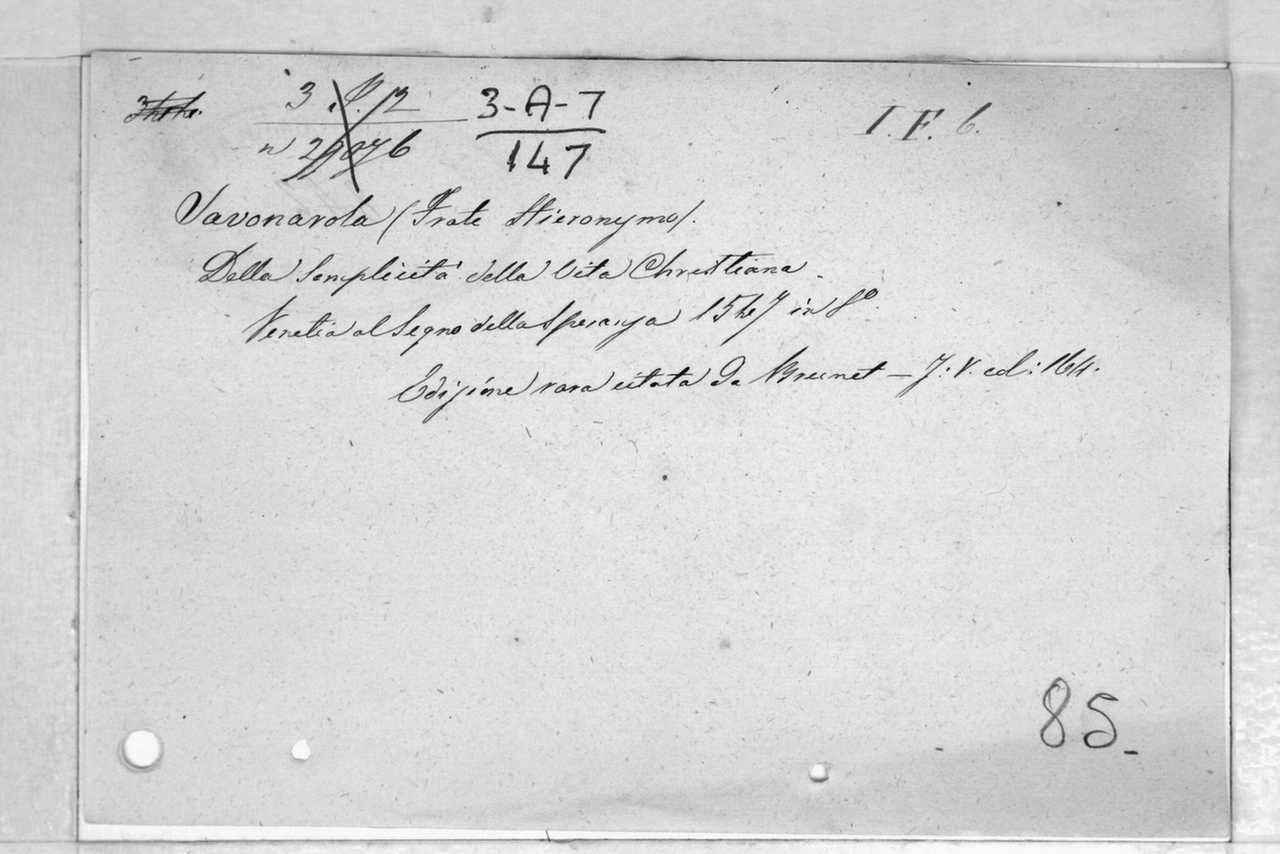 3 P. 12 3-A-7 I. F. 6.
n 29076 147
Savonarola (Frate Hieronymo).
Della Semplicità della Vita Christiana.
Venetia al Segno della Speranza 1547 in 8º
Edizione rara citata da Brunet — T. V. col: 164.
85